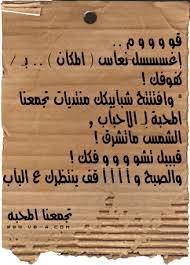 قوووم ..
إغسسسل نعآس ( المكآن ) .. بـ /
كفوفك !
* وافتتتح شبآبيكك منتديآت تجمعنآ
المحبة لـ الأحبآب ,
الشمس مآتشرق !
قبببل تشووووفكك !
والصبح وآآآقف ينتظرك ع البآب
تجمعنا المحبه
WWW.V8-A.COM